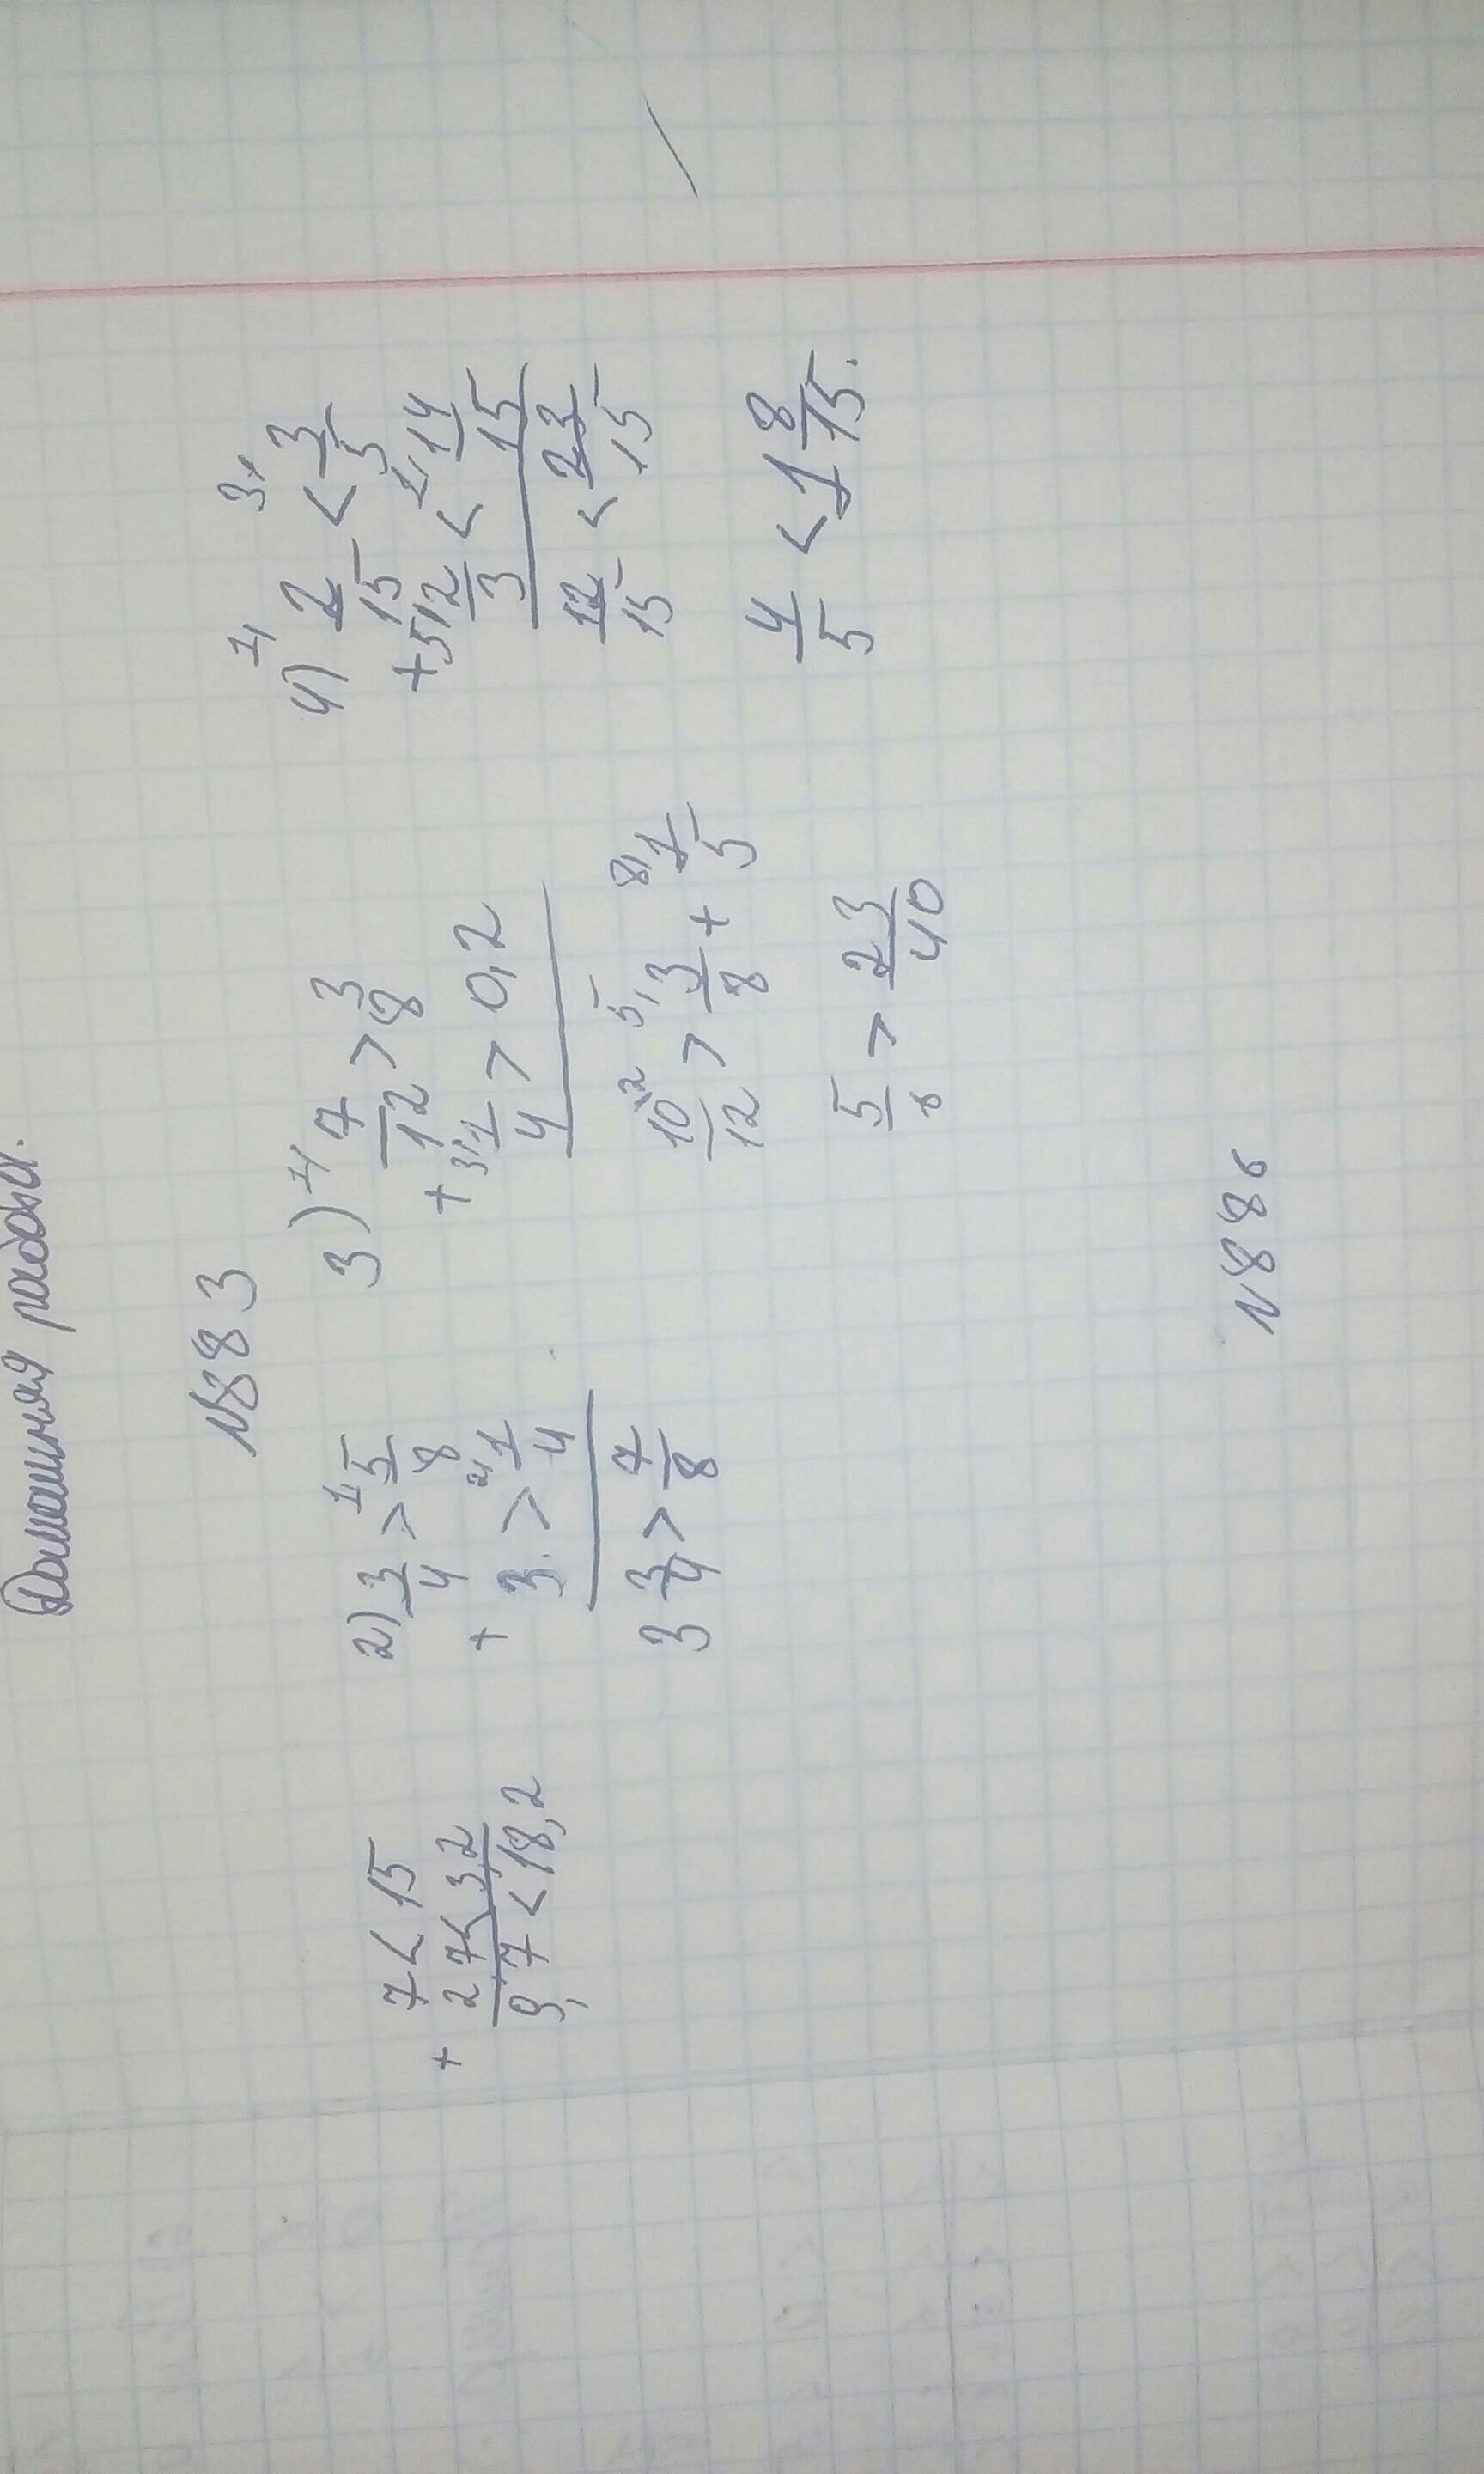 Домашняя работа.
N883
7 < 15
+ 2,7 < 3,2
9,7 < 18,2
2) 3/4 > 1) 5/8
+ 3 > 2) 1/4
3 3/4 > 7/8
3) 1) 7/12 > 3/8
+ 3) 1/4 > 0,2
10/12 > 5) 3/8 + 8) 1/5
5/6 > 23/40
4) 1) 2/15 < 3) 3/5
+ 5) 2/3 < 1) 14/15
12/15 < 23/15
4/5 < 1 8/15.
N886